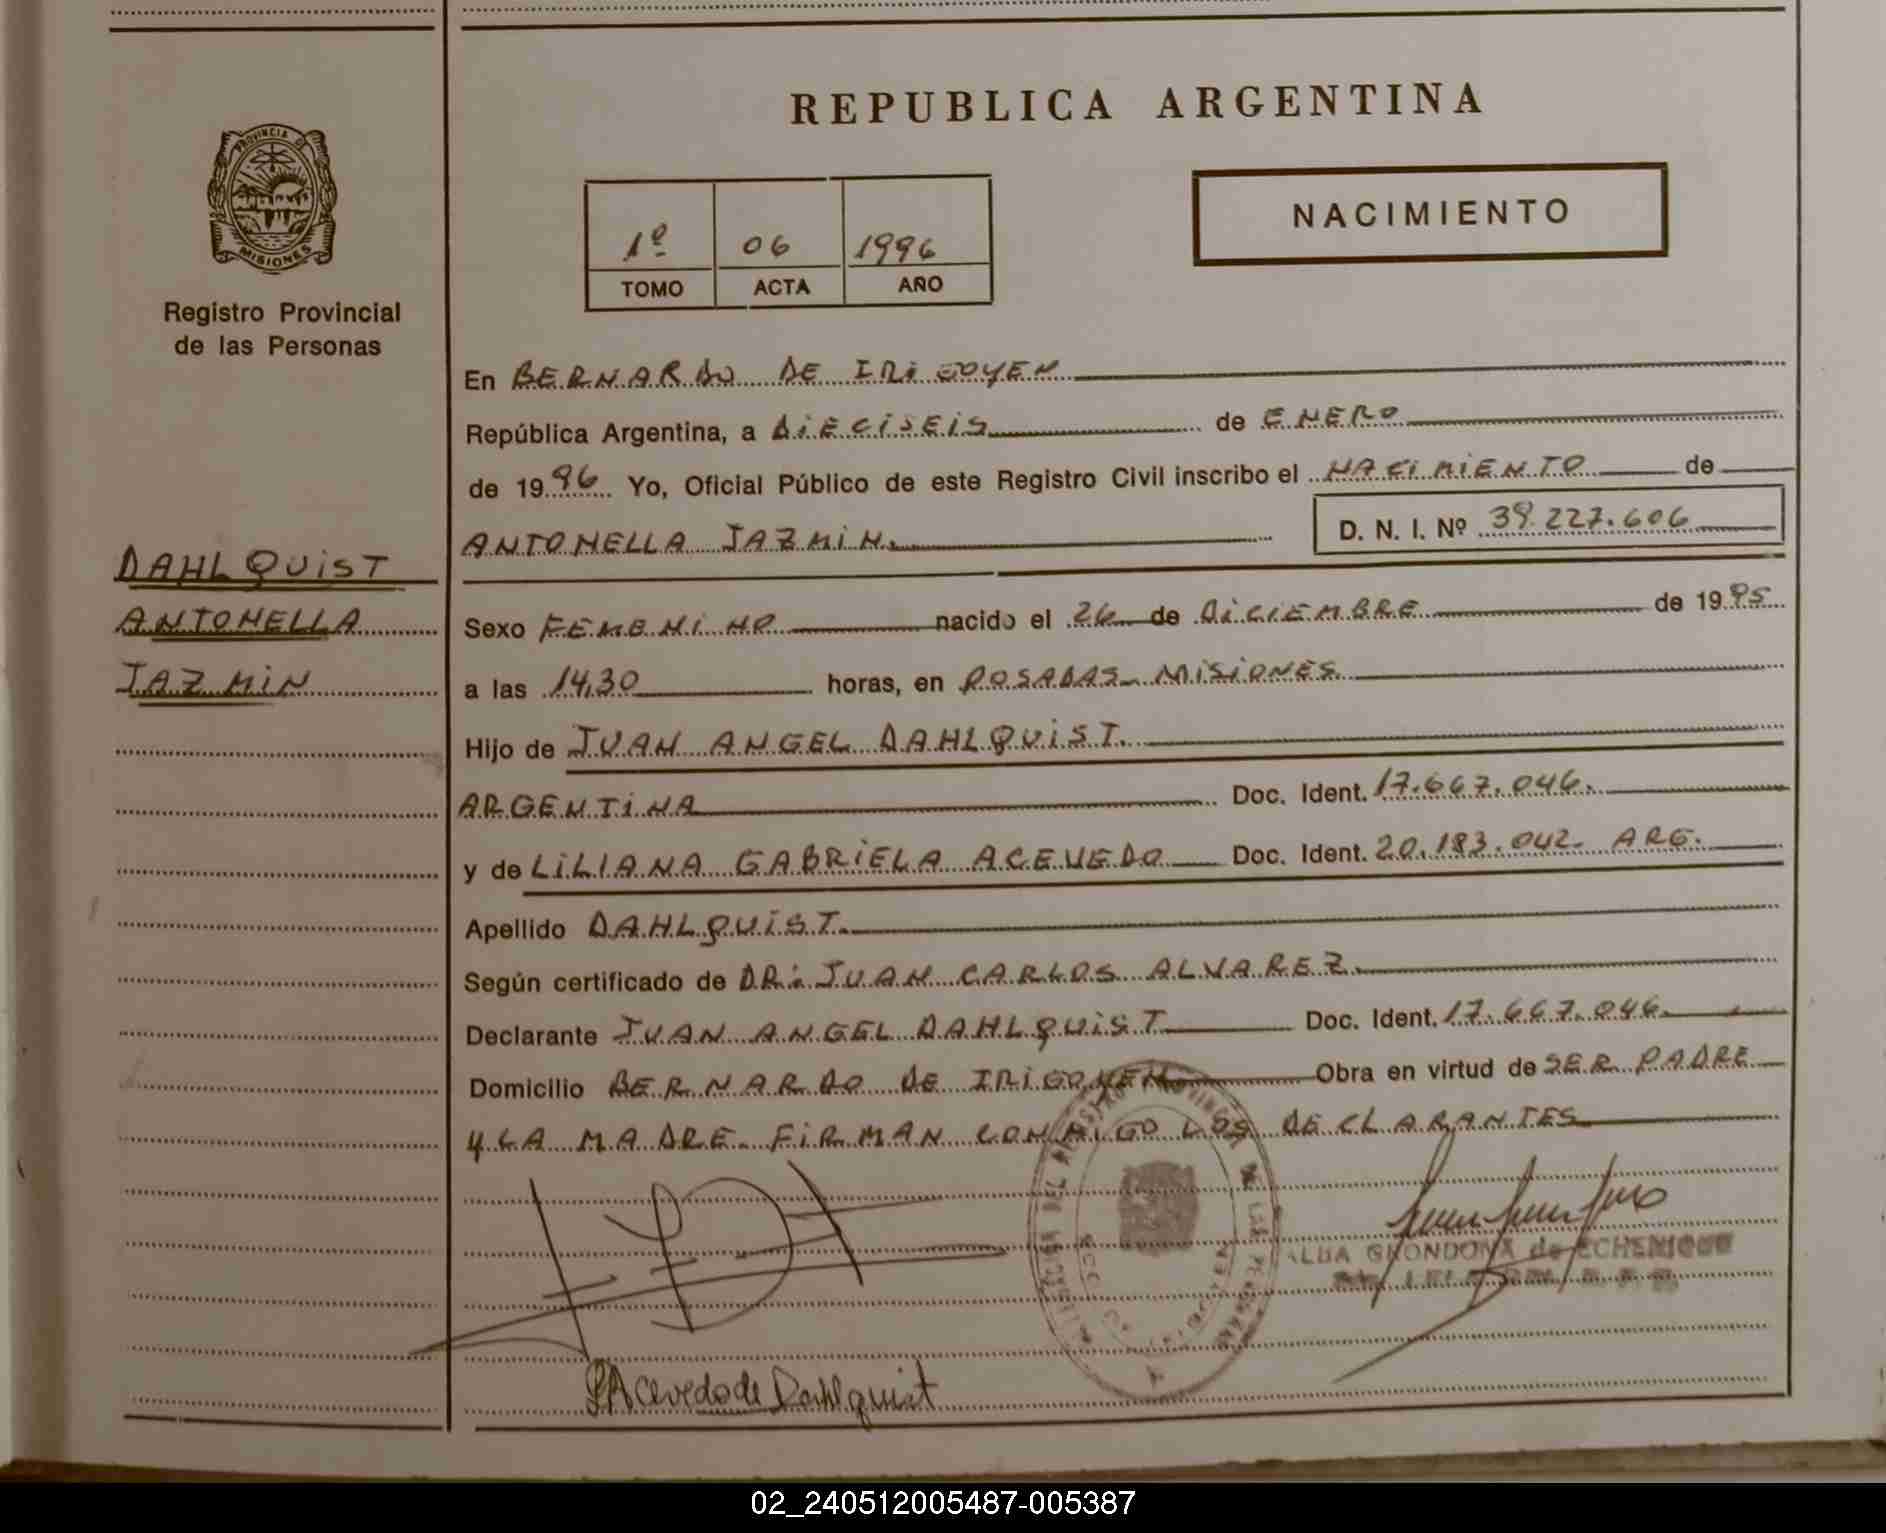 REPUBLICA ARGENTINA
PROVINCIA DE
MISIONES
Registro Provincial
de las Personas
1º 06 1996
TOMO ACTA AÑO
NACIMIENTO
En BERNARDO DE IRIGOYEN
República Argentina, a DIECISEIS de ENERO
de 1996 Yo, Oficial Público de este Registro Civil inscribo el NACIMIENTO de
ANTONELLA JAZMIN. D. N. I. Nº 39.227.606
DAHLQUIST
ANTONELLA
JAZMIN
Sexo FEMENINO nacido el 26 de DICIEMBRE de 1995
a las 14,30 horas, en POSADAS MISIONES.
Hijo de JUAN ANGEL DAHLQUIST.
ARGENTINA Doc. Ident. 17.667.046.
y de LILIANA GABRIELA ACEVEDO Doc. Ident. 20.183.042. ARG.
Apellido DAHLQUIST.
Según certificado de DR: JUAN CARLOS ALVAREZ.
Declarante JUAN ANGEL DAHLQUIST Doc. Ident. 17.667.046.
Domicilio BERNARDO DE IRIGOYEN Obra en virtud de SER PADRE
Y LA MADRE. FIRMAN CONMIGO LOS DECLARANTES
ALBA GRONDONA de ECHENIQUE
L Acevedo de Dahlquist
02_240512005487-005387